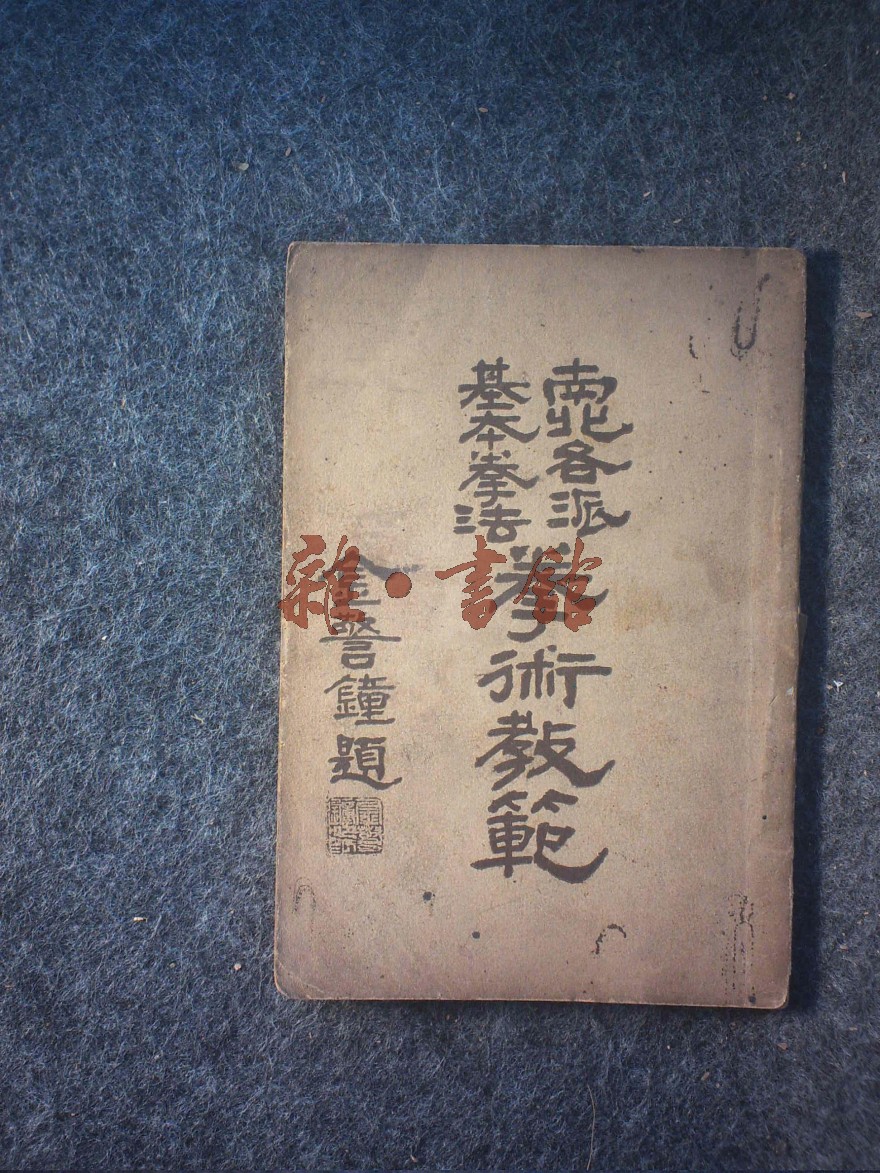 南北各派
基本拳法
拳術教範
金警鐘題
雜·書館